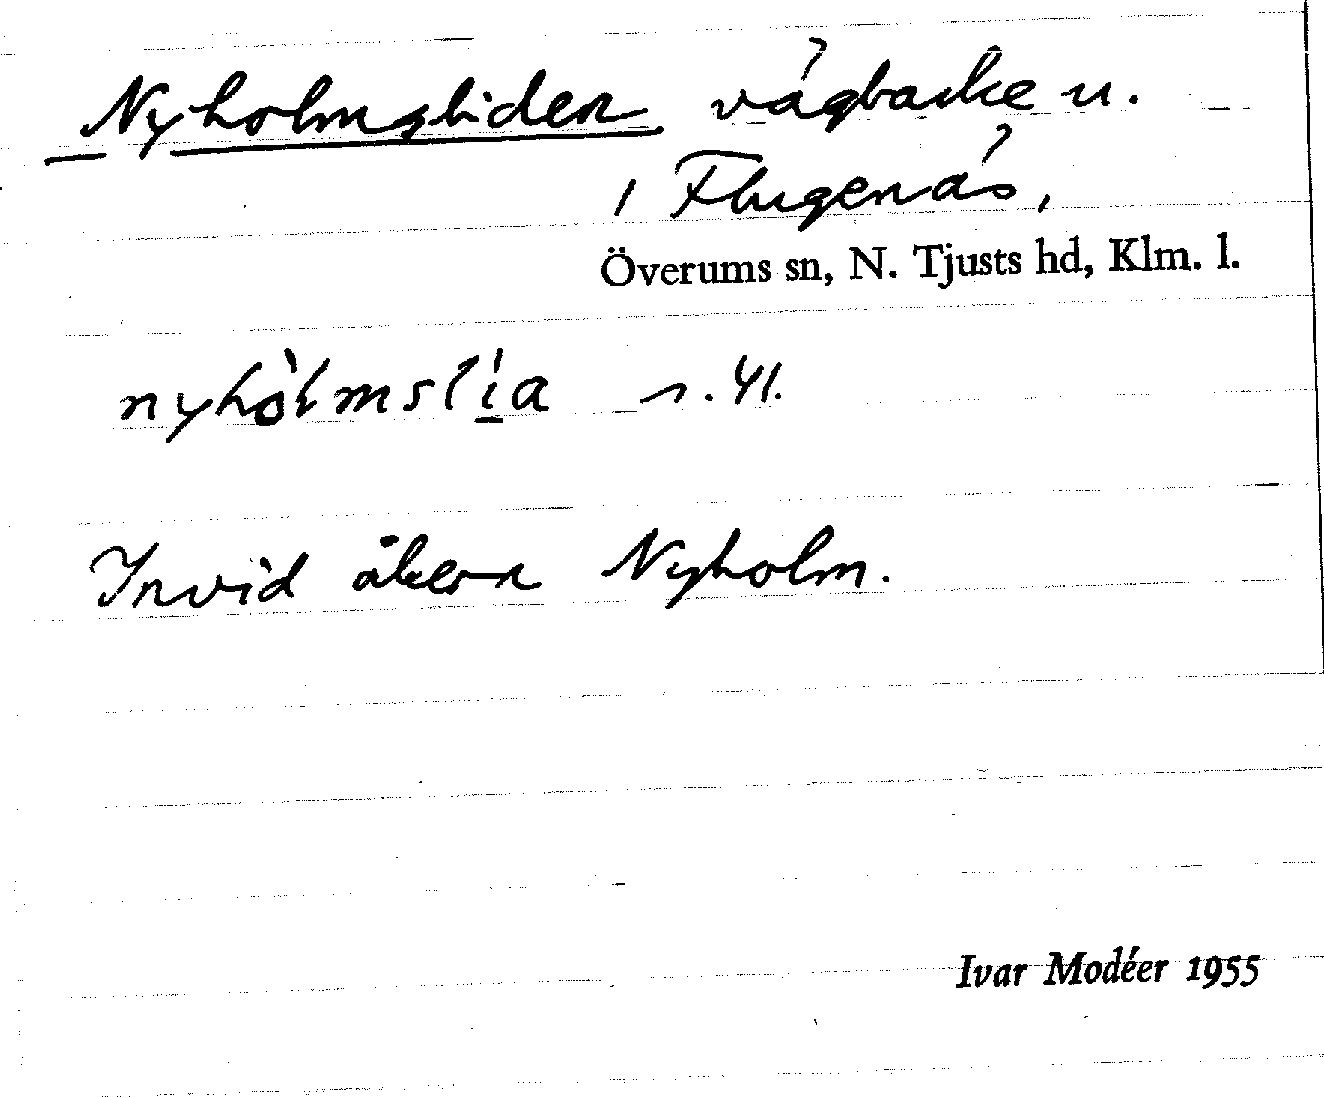 Nyholmsliden vägbacke u.
i Flugenäs,
Överums sn, N. Tjusts hd, Klm. l.
nyhòlmslía s. 41.
Invid åkern Nyholm.
Ivar Modéer 1955